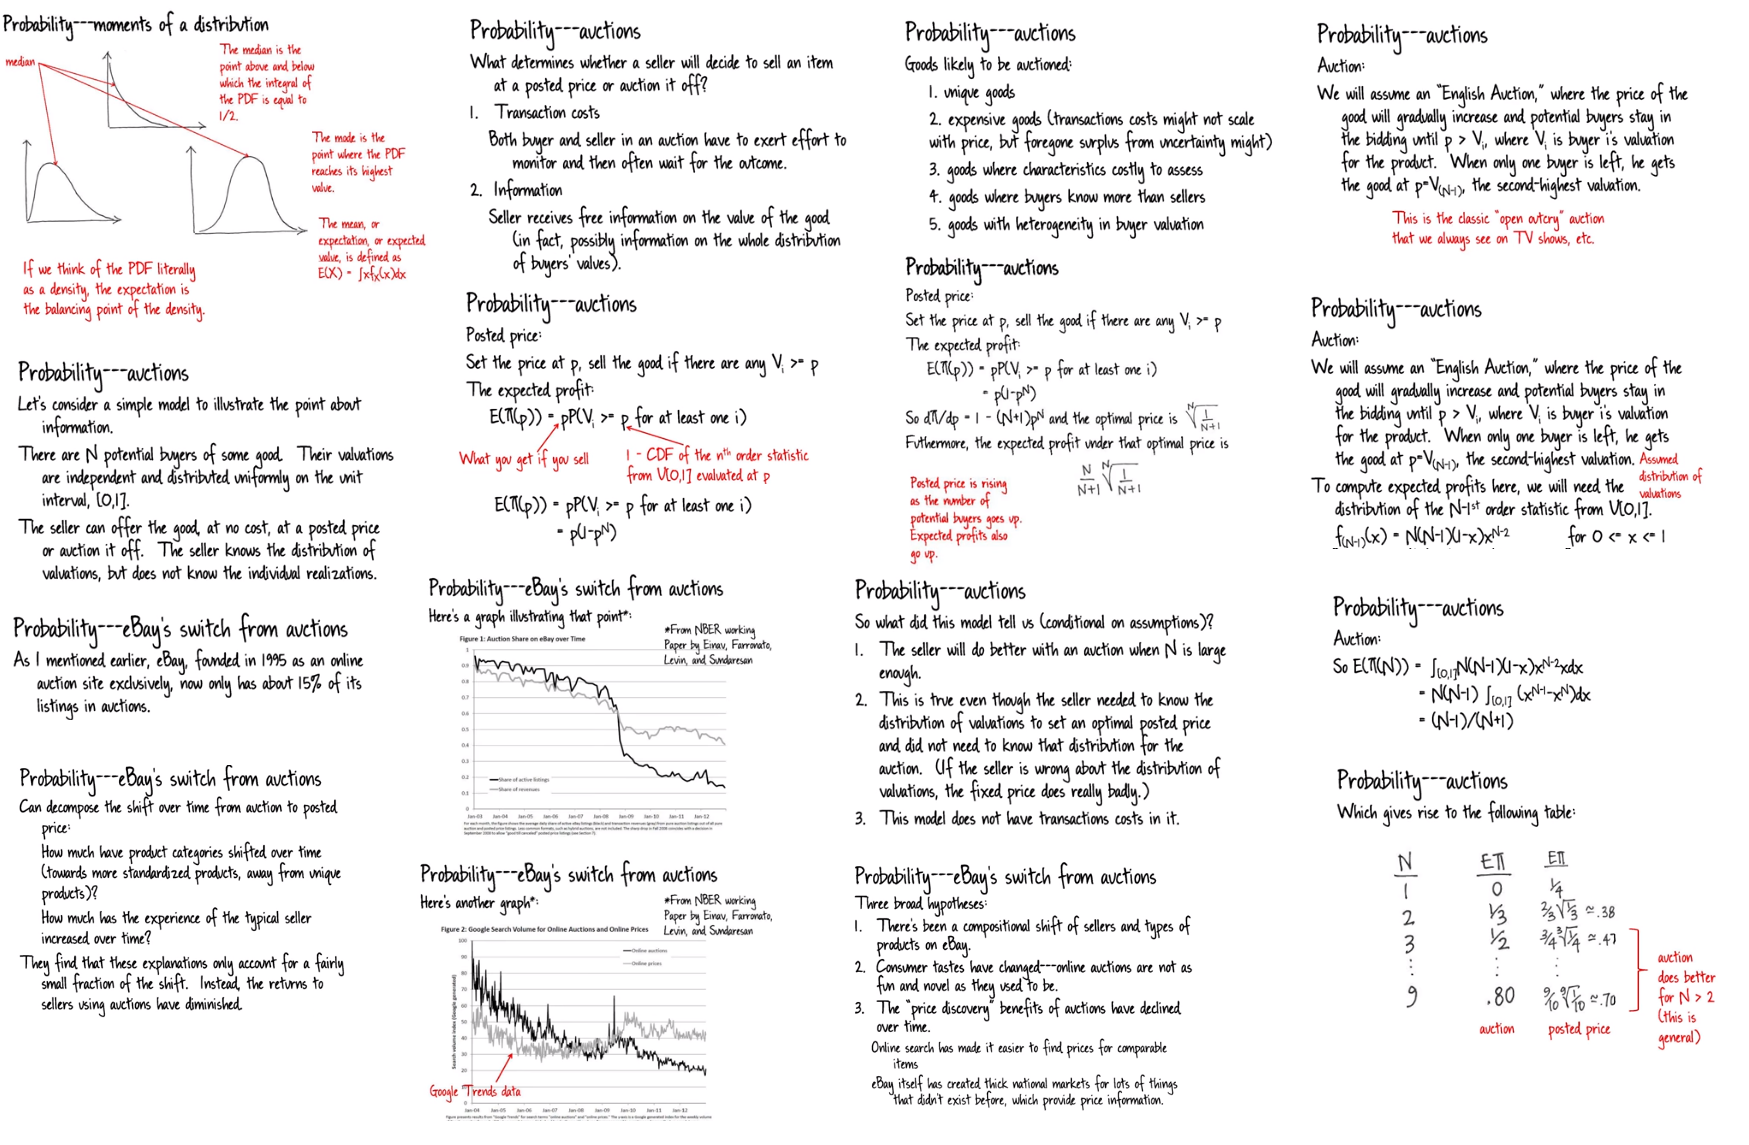 Probability---moments of a distribution
median
The median is the
point above and below
which the integral of
the PDF is equal to
1/2.
The mode is the
point where the PDF
reaches its highest
value.
The mean, or
expectation, or expected
value, is defined as
E(X) = ∫xfₓ(x)dx
If we think of the PDF literally
as a density, the expectation is
the balancing point of the density.
Probability---auctions
Let's consider a simple model to illustrate the point about
information.
There are N potential buyers of some good. Their valuations
are independent and distributed uniformly on the unit
interval, [0,1].
The seller can offer the good, at no cost, at a posted price
or auction it off. The seller knows the distribution of
valuations, but does not know the individual realizations.
Probability---eBay's switch from auctions
As I mentioned earlier, eBay, founded in 1995 as an online
auction site exclusively, now only has about 15% of its
listings in auctions.
Probability---eBay's switch from auctions
Can decompose the shift over time from auction to posted
price:
How much have product categories shifted over time
(towards more standardized products, away from unique
products)?
How much has the experience of the typical seller
increased over time?
They find that these explanations only account for a fairly
small fraction of the shift. Instead, the returns to
sellers using auctions have diminished.
Probability---auctions
What determines whether a seller will decide to sell an item
at a posted price or auction it off?
1. Transaction costs
Both buyer and seller in an auction have to exert effort to
monitor and then often wait for the outcome.
2. Information
Seller receives free information on the value of the good
(in fact, possibly information on the whole distribution
of buyers' values).
Probability---auctions
Posted price:
Set the price at p, sell the good if there are any Vᵢ >= p
The expected profit:
E(π(p)) = pP(Vᵢ >= p for at least one i)
What you get if you sell
1 - CDF of the nᵗʰ order statistic
from U[0,1] evaluated at p
E(π(p)) = pP(Vᵢ >= p for at least one i)
= p(1-pᴺ)
Probability---eBay's switch from auctions
Here's a graph illustrating that point*:
*From NBER working
Paper by Einav, Farronato,
Levin, and Sundaresan
Figure 1: Auction Share on eBay over Time
1
0.9
0.8
0.7
0.6
0.5
0.4
0.3
0.2
0.1
0
Share of active listings
Share of revenues
Jan-03 Jan-04 Jan-05 Jan-06 Jan-07 Jan-08 Jan-09 Jan-10 Jan-11 Jan-12
Probability---eBay's switch from auctions
Here's another graph*:
*From NBER working
Paper by Einav, Farronato,
Levin, and Sundaresan
Figure 2: Google Search Volume for Online Auctions and Online Prices
Search volume index (Google generated)
100
90
80
70
60
50
40
30
20
0
Online auctions
Online prices
Google Trends data
Jan-04 Jan-05 Jan-06 Jan-07 Jan-08 Jan-09 Jan-10 Jan-11 Jan-12
Probability---auctions
Goods likely to be auctioned:
1. unique goods
2. expensive goods (transactions costs might not scale
with price, but foregone surplus from uncertainty might)
3. goods where characteristics costly to assess
4. goods where buyers know more than sellers
5. goods with heterogeneity in buyer valuation
Probability---auctions
Posted price:
Set the price at p, sell the good if there are any Vᵢ >= p
The expected profit:
E(π(p)) = pP(Vᵢ >= p for at least one i)
= p(1-pᴺ)
So dπ/dp = 1 - (N+1)pᴺ and the optimal price is ᴺ√(1/(N+1))
Futhermore, the expected profit under that optimal price is
N/(N+1) ᴺ√(1/(N+1))
Posted price is rising
as the number of
potential buyers goes up.
Expected profits also
go up.
Probability---auctions
So what did this model tell us (conditional on assumptions)?
1. The seller will do better with an auction when N is large
enough.
2. This is true even though the seller needed to know the
distribution of valuations to set an optimal posted price
and did not need to know that distribution for the
auction. (If the seller is wrong about the distribution of
valuations, the fixed price does really badly.)
3. This model does not have transactions costs in it.
Probability---eBay's switch from auctions
Three broad hypotheses:
1. There's been a compositional shift of sellers and types of
products on eBay.
2. Consumer tastes have changed---online auctions are not as
fun and novel as they used to be.
3. The "price discovery" benefits of auctions have declined
over time.
Online search has made it easier to find prices for comparable
items
eBay itself has created thick national markets for lots of things
that didn't exist before, which provide price information.
Probability---auctions
Auction:
We will assume an "English Auction," where the price of the
good will gradually increase and potential buyers stay in
the bidding until p > Vᵢ, where Vᵢ is buyer i's valuation
for the product. When only one buyer is left, he gets
the good at p=V₍N-1₎, the second-highest valuation.
This is the classic "open outcry" auction
that we always see on TV shows, etc.
Probability---auctions
Auction:
We will assume an "English Auction," where the price of the
good will gradually increase and potential buyers stay in
the bidding until p > Vᵢ, where Vᵢ is buyer i's valuation
for the product. When only one buyer is left, he gets
the good at p=V₍N-1₎, the second-highest valuation.
Assumed
distribution of
valuations
To compute expected profits here, we will need the
distribution of the N-1ˢᵗ order statistic from U[0,1].
f₍N-1₎(x) = N(N-1)(1-x)xᴺ⁻² for 0 <= x <= 1
Probability---auctions
Auction:
So E(π(N)) = ∫[0,1]N(N-1)(1-x)xᴺ⁻²xdx
= N(N-1) ∫[0,1] (xᴺ⁻¹-xᴺ)dx
= (N-1)/(N+1)
Probability---auctions
Which gives rise to the following table:
N Eπ Eπ
1 0 1/4
2 1/3 2/3 √(1/3) ≃ .38
3 1/2 3/4 ³√(1/4) ≃ .47
⋮ ⋮ ⋮
9 .80 9/10 ⁹√(1/10) ≃ .70
auction posted price
auction
does better
for N > 2
(this is
general)